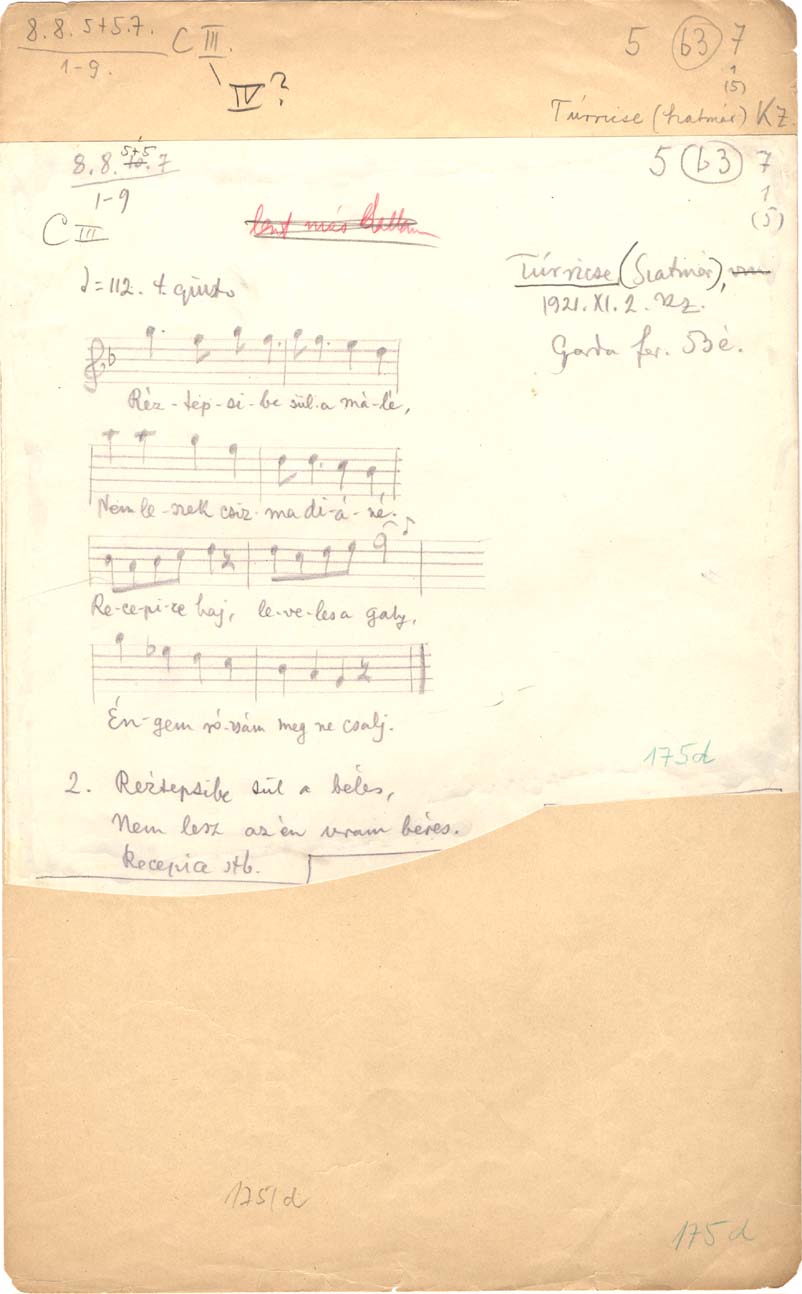 8.8. 5+5.7.
1-9.
C III.
IV?
5 (b3) 7
1
(5)
Túrricse (Szatmár) Kz.
8.8. 5+5 10.7
1-9
C III
5 (b3) 7
1
(5)
lent más dallam
♩=112. t. giusto
Túrricse (Szatmár),
1921. XI. 2. Kz.
Garda fer. 53 é.
Réz-tep-si-be sül a má-lé,
Nem le-szek csiz-ma-di-á-né.
Re-ce-pi-ce haj, le-ve-les a galy,
Én-gem ró-zsám meg ne csalj.
2. Réztepsibe sül a béles,
Nem lesz az én uram béres.
Recepice stb.
175d
175/d
175d